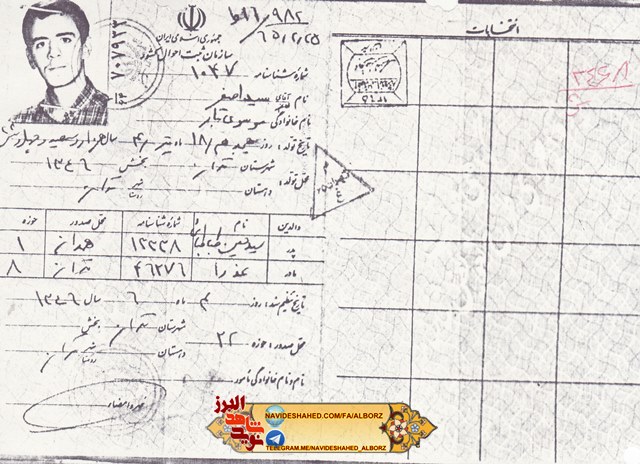 ۹۸۲/۶ط
۶۵/۲/۲۵
جمهوری اسلامی ایران
سازمان ثبت احوال کشور
۷۰۷۹۳۳
شماره شناسنامه ۱۰۴۷
نام آقای سید اصغر
نام خانوادگی موسوی تبار
تاریخ تولد: روز هیجدهم /۱۸ ماه تیر /۴ سال هزار و سیصد و چهل و شش
۱۳۴۶
محل تولد: شهرستان تهران بخش
دهستان شهر روستا تهران
والدین نام شماره شناسنامه محل صدور حوزه
پدر سید حسین طباطبائی ۱۲۳۳۸ همدان ۱
مادر عذرا ۴۶۲۷۶ تهران ۸
تاریخ تنظیم سند: روز ماه ۶ سال ۱۳۴۶
محل صدور: حوزه ۲۲ شهرستان تهران بخش
دهستان شهر روستا تهران
نام و نام خانوادگی مأمور
مهر و امضاء
انتخابات
نوید شاهد البرز
NAVIDESHAHED.COM/FA/ALBORZ
TELEGRAM.ME/NAVIDESHAHED_ALBORZ